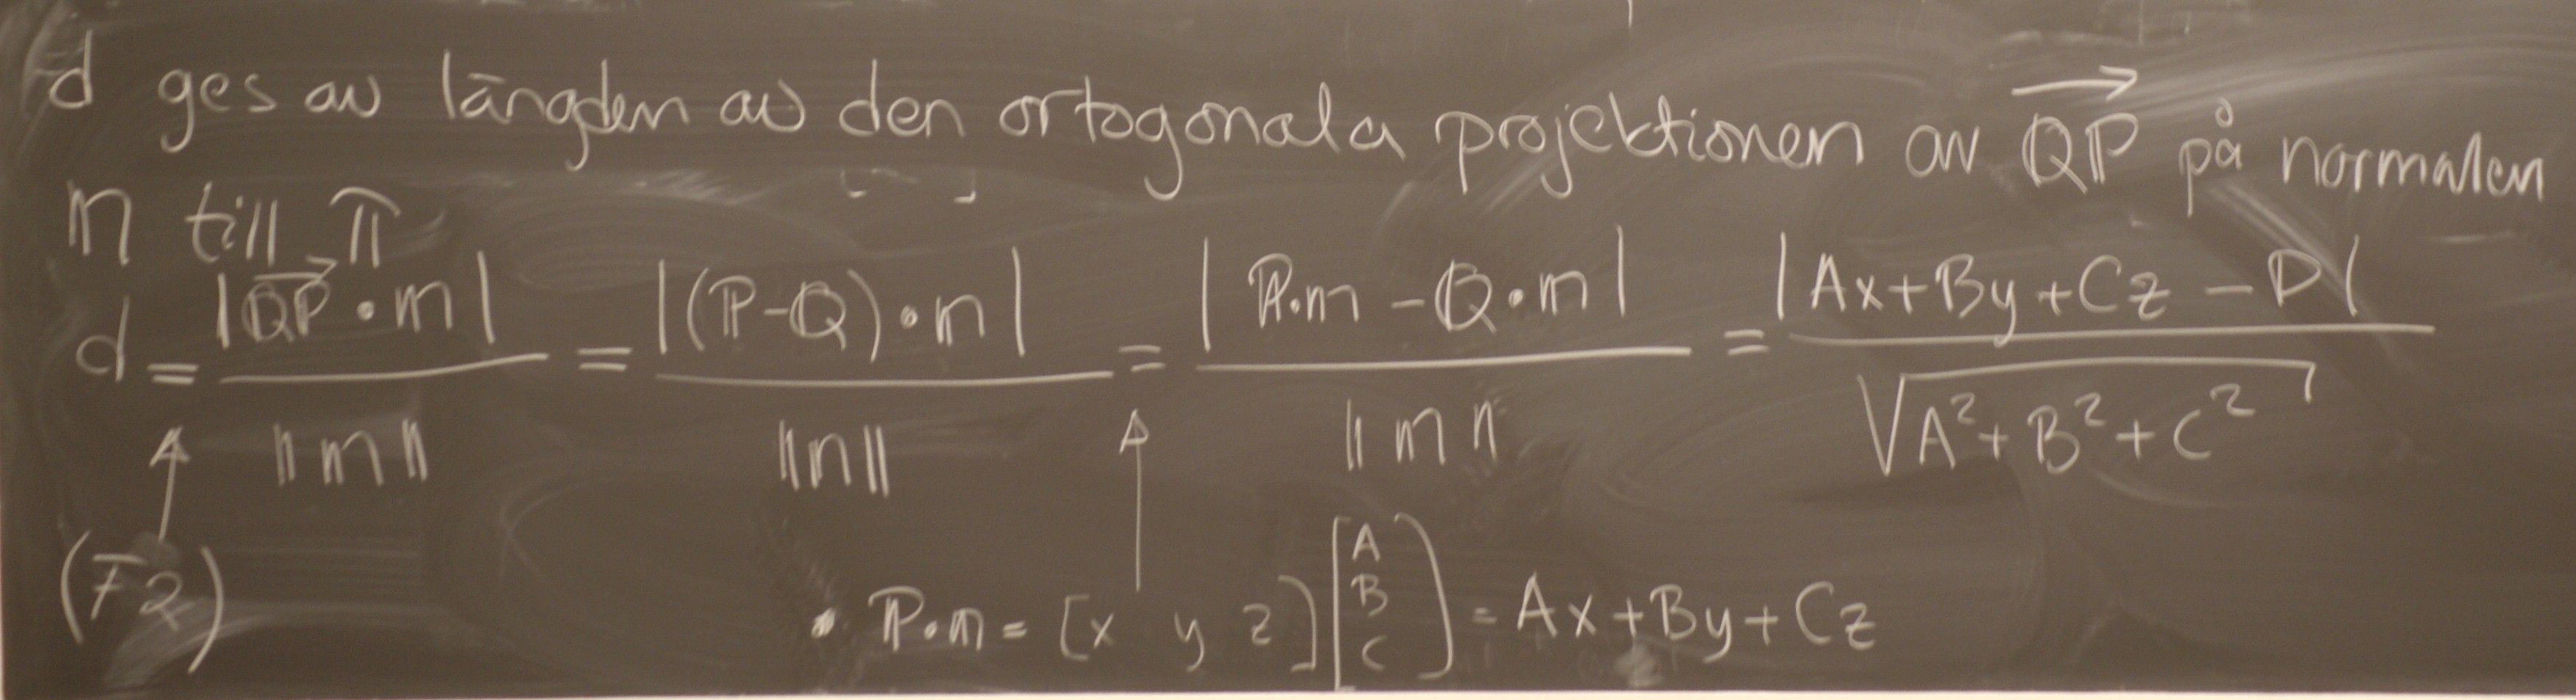 d ges av längden av den ortogonala projektionen av $\overrightarrow{QP}$ på normalen
n till π
$d = \frac{|\overrightarrow{QP} \cdot n|}{\|n\|} = \frac{|(P-Q) \cdot n|}{\|n\|} = \frac{|P \cdot n - Q \cdot n|}{\|n\|} = \frac{|Ax+By+Cz-D|}{\sqrt{A^2+B^2+C^2}}$
(F2)
• $P \cdot n = [x \; y \; z] \begin{bmatrix} A \\ B \\ C \end{bmatrix} = Ax+By+Cz$